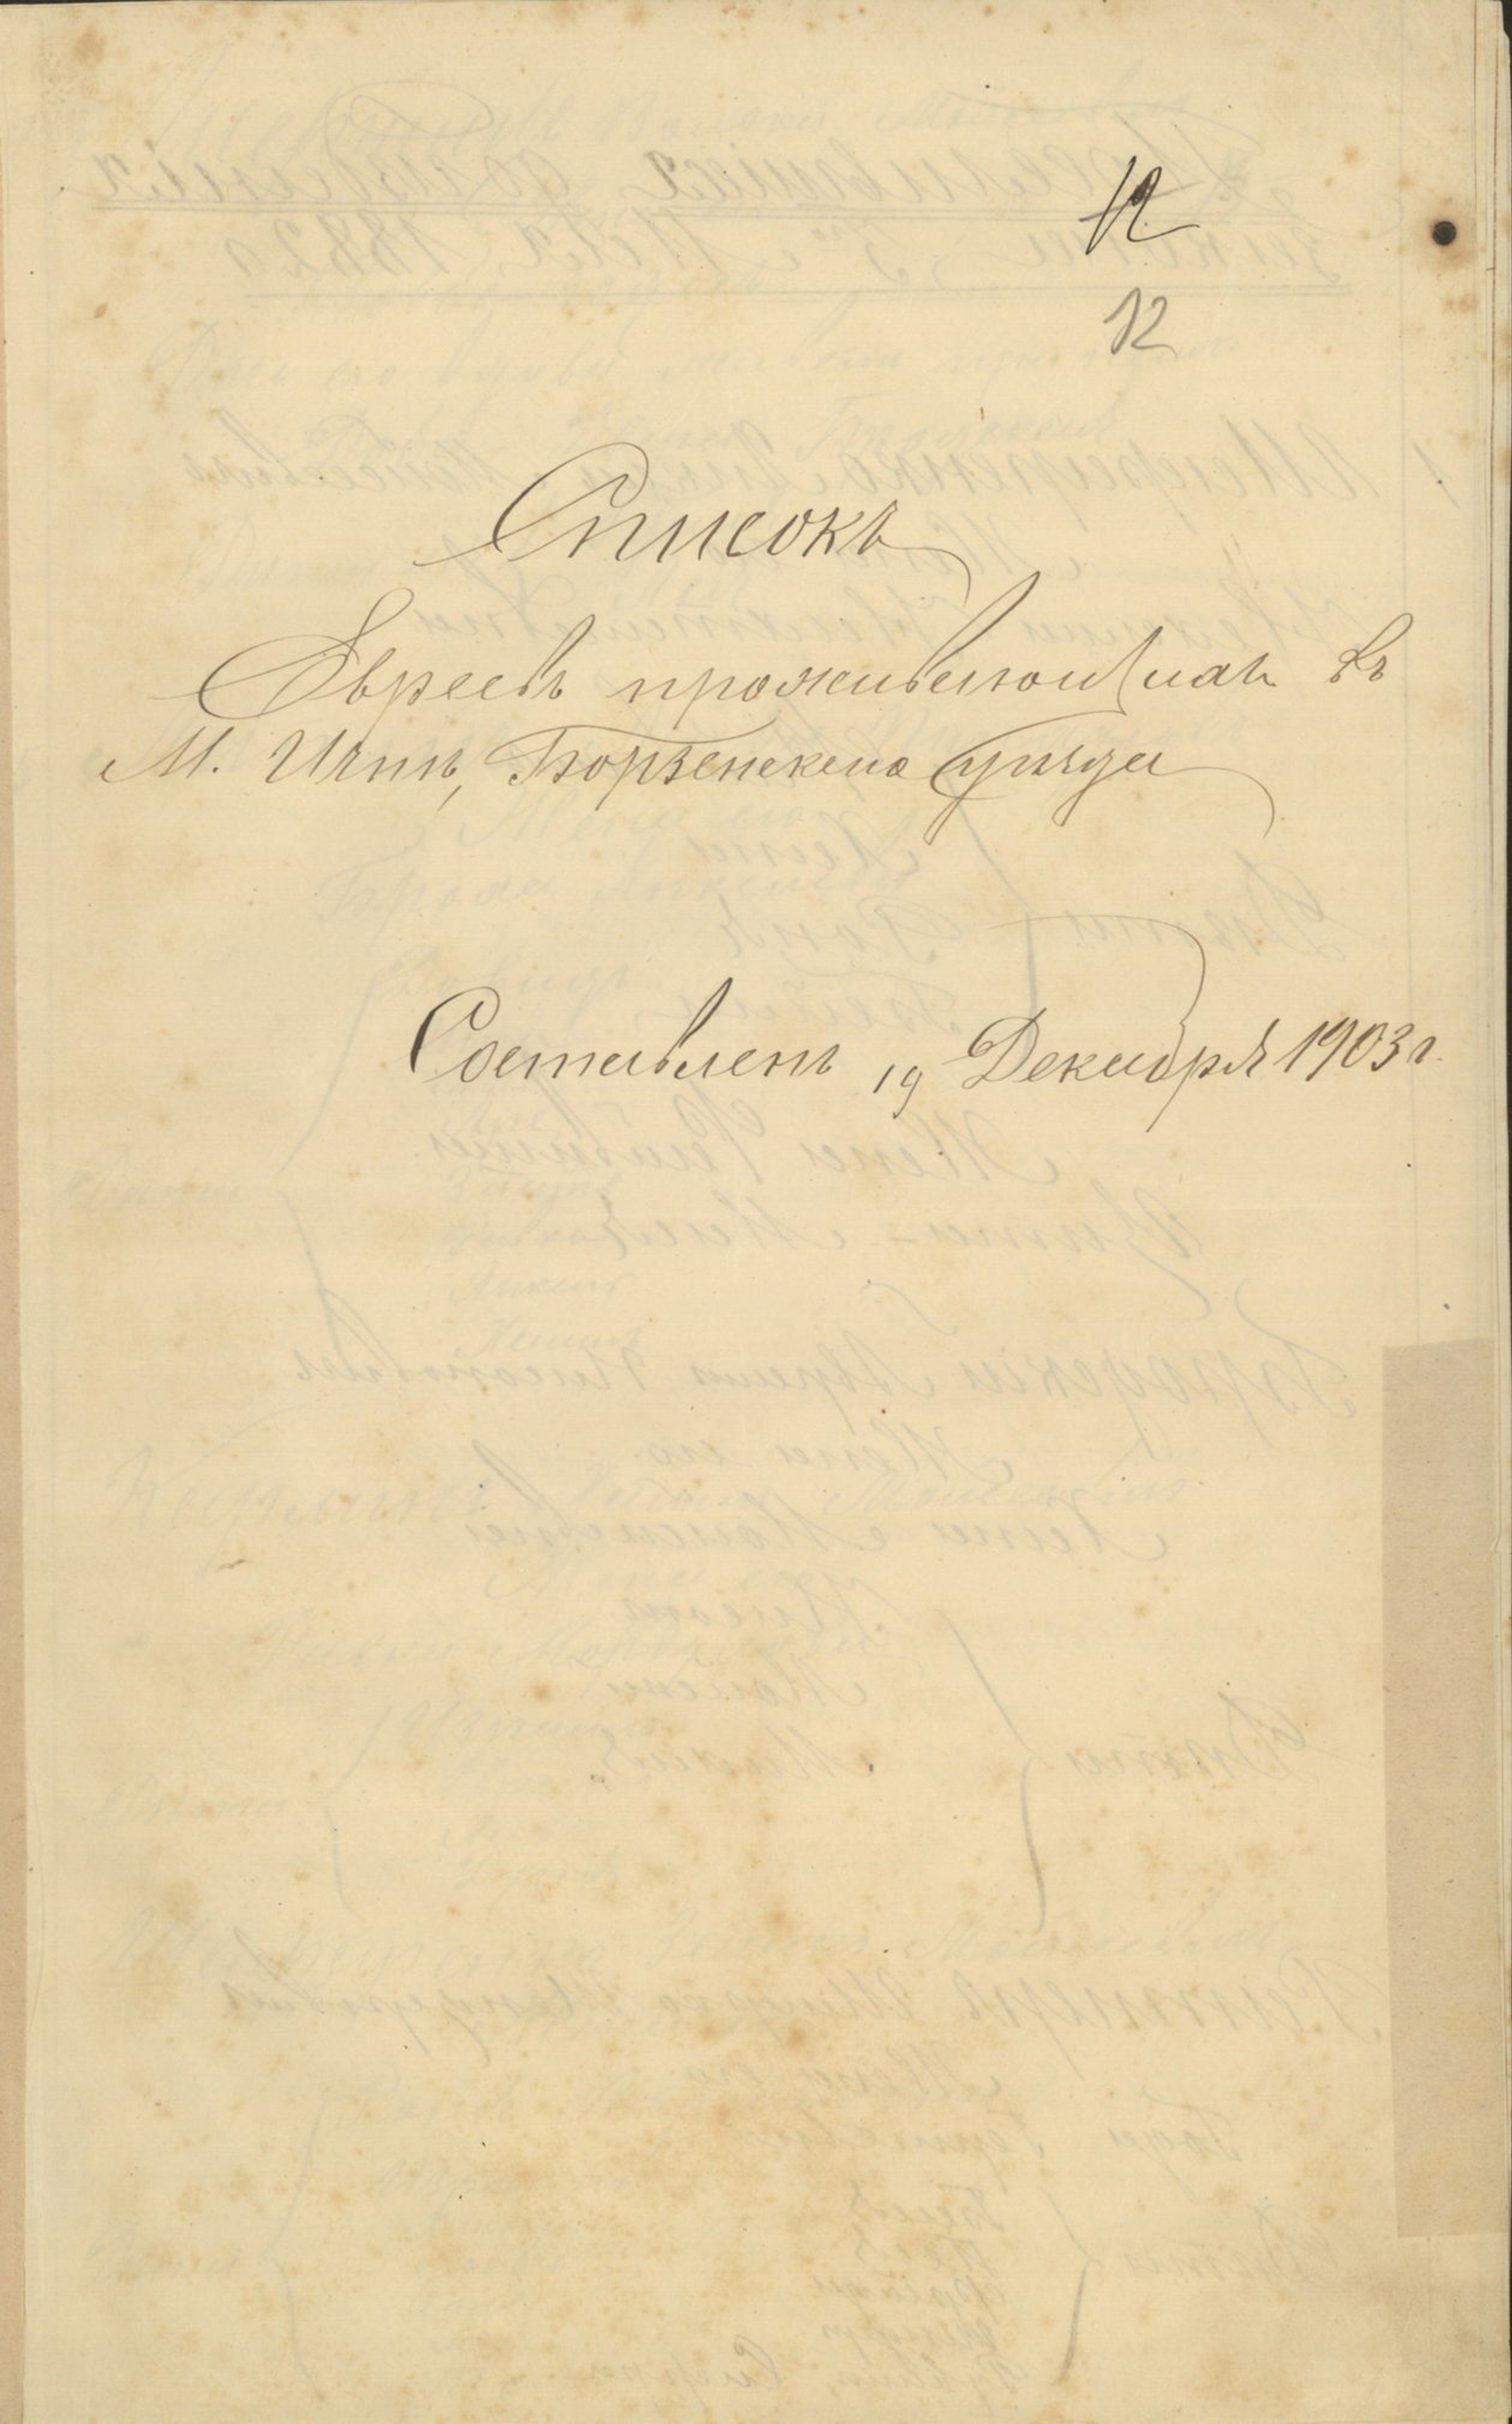 12
12
Списокъ
Евреевъ проживающихъ въ
М. Ичнѣ, Борзенскаго уѣзда
Составленъ 19 Декабря 1903 г.